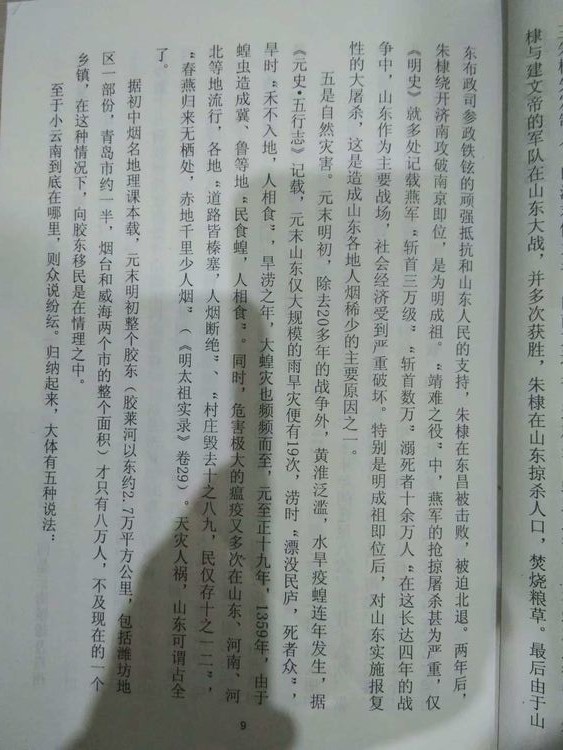 棣与建文帝的军队在山东大战，并多次获胜，朱棣在山东掠杀人口，焚烧粮草。最后由于山
东布政司参政铁铉的顽强抵抗和山东人民的支持，朱棣在东昌被击败，被迫北退。两年后，
朱棣绕开济南攻破南京即位，是为明成祖。“靖难之役”中，燕军的抢掠屠杀甚为严重，仅
《明史》就多处记载燕军“斩首三万级”“斩首数万”溺死者十余万人“在这长达四年的战
争中，山东作为主要战场，社会经济受到严重破坏。特别是明成祖即位后，对山东实施报复
性的大屠杀，这是造成山东各地人烟稀少的主要原因之一。
五是自然灾害。元末明初，除去20多年的战争外，黄淮泛滥，水旱疫蝗连年发生，据
《元史·五行志》记载，元末山东仅大规模的雨旱灾便有19次，涝时“漂没民庐，死者众”，
旱时“禾不入地，人相食”，旱涝之年，大蝗灾也频频而至，元至正十九年，1359年，由于
蝗虫造成冀、鲁等地“民食蝗，人相食”。同时，危害极大的瘟疫又多次在山东、河南、河
北等地流行，各地“道路皆榛塞，人烟断绝”、“村庄毁去十之八九，民仅存十之一二”，
“春燕归来无栖处，赤地千里少人烟”（《明太祖实录》卷29）。天灾人祸，山东可谓占全
了。
据初中烟名地理课本载，元末明初整个胶东（胶莱河以东约2.7万平方公里，包括潍坊地
区一部份，青岛市约一半，烟台和威海两个市的整个面积）才只有八万人，不及现在的一个
乡镇，在这种情况下，向胶东移民是在情理之中。
至于小云南到底在哪里，则众说纷纭。归纳起来，大体有五种说法：
9